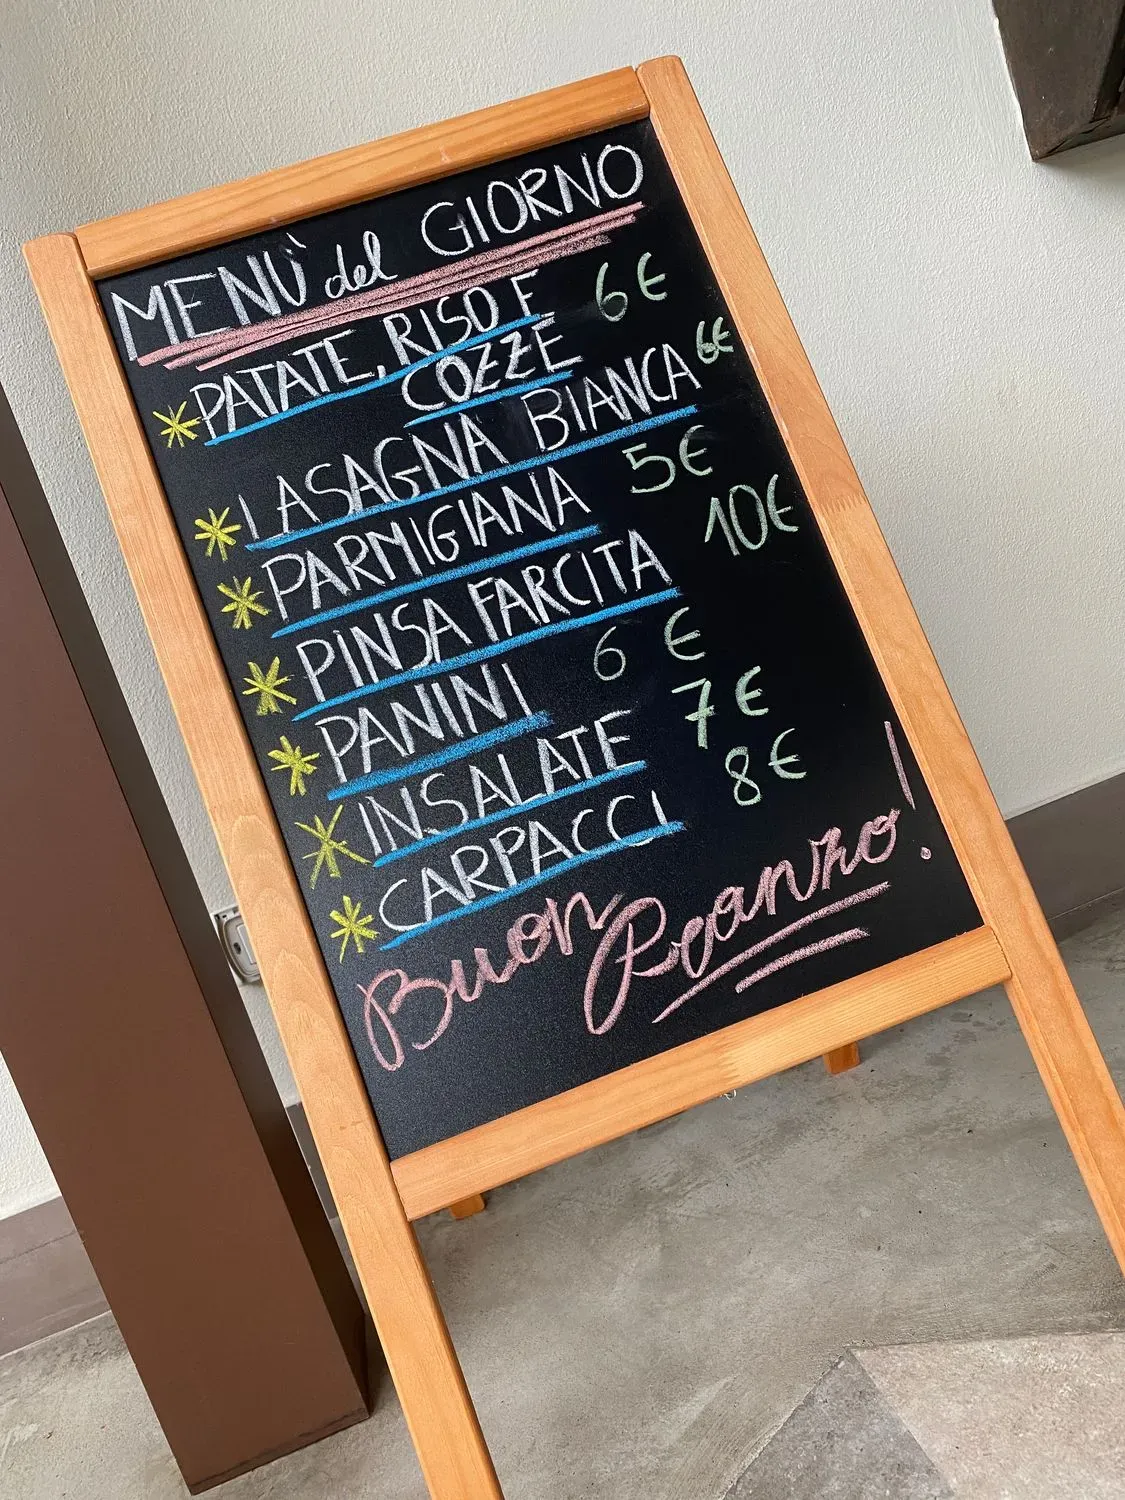 MENÙ del GIORNO
PATATE, RISO E 6€
COZZE
LASAGNA BIANCA 6€
PARMIGIANA 5€
PINSA FARCITA 10€
PANINI 6 €
INSALATE 7€
CARPACCI 8€
Buon Pranzo!